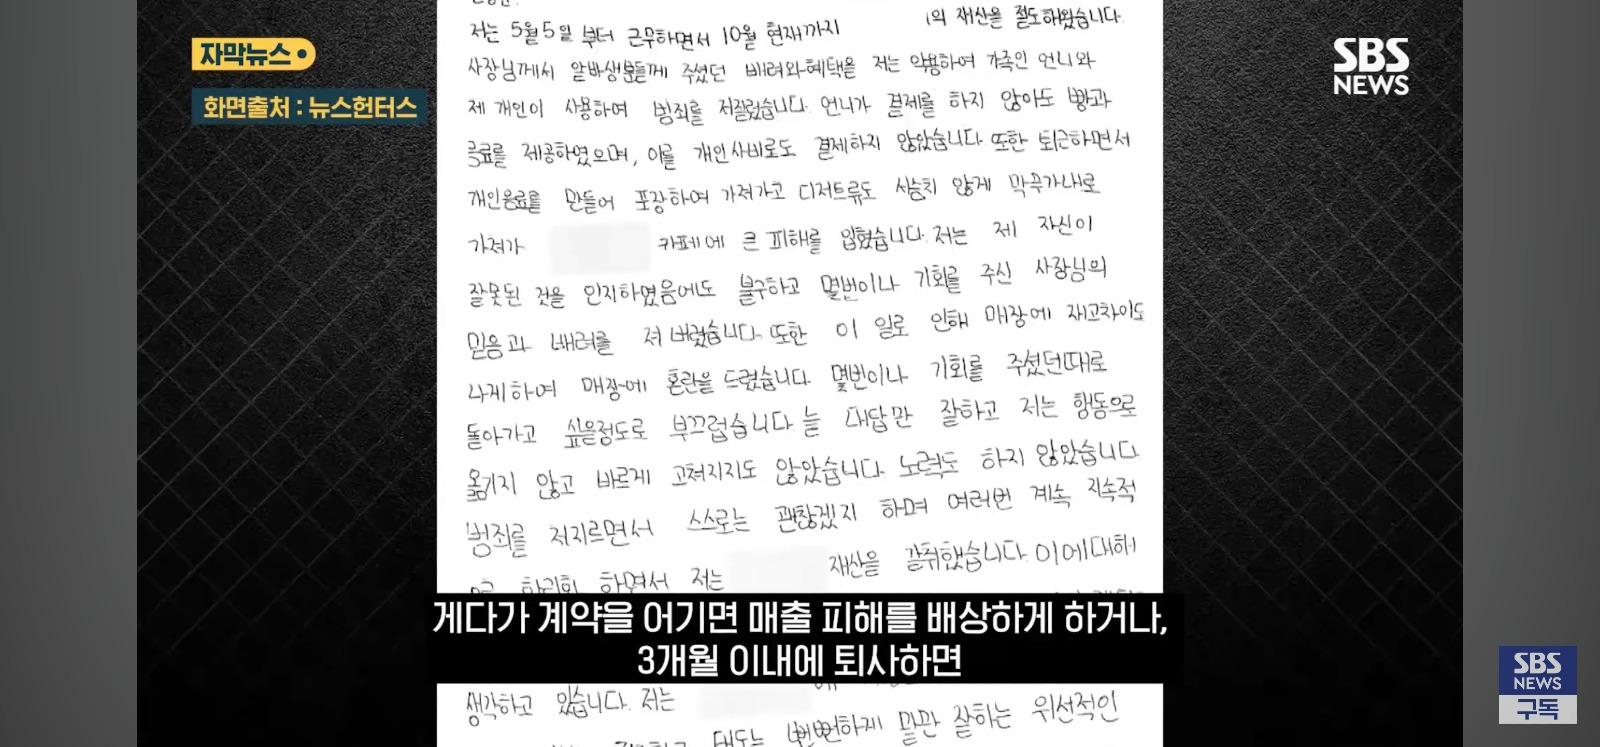 자막뉴스
화면출처 : 뉴스헌터스
SBS
NEWS
저는 5월5일 부터 근무하면서 10월 현재까지 의 재산을 절도해왔습니다.
사장님께서 알바생분들께 주셨던 배려와 혜택을 저는 악용하여 가족인 언니와
제 개인이 사용하여 범죄를 저질렀습니다. 언니가 결제를 하지 않아도 빵과
음료를 제공하였으며, 이를 개인사비로도 결제하지 않았습니다. 또한 퇴근하면서
개인음료를 만들어 포장하여 가져가고 디저트류도 서슴치 않게 막무가내로
가져가 카페에 큰 피해를 입혔습니다. 저는 제 자신이
잘못된 것을 인지하였음에도 불구하고 몇번이나 기회를 주신 사장님의
믿음과 배려를 져 버렸습니다. 또한 이 일로 인해 매장에 재고차이도
나게하여 매장에 혼란을 드렸습니다. 몇번이나 기회를 주셨던때로
돌아가고 싶을정도로 부끄럽습니다. 늘 대답만 잘하고 저는 행동으로
옮기지 않고 바르게 고쳐지지도 않았습니다. 노력도 하지 않았습니다.
범죄를 저지르면서 스스로는 괜찮겠지 하며 여러번 계속 지속적
하면서 저는 재산을 갈취했습니다. 이에대해
게다가 계약을 어기면 매출 피해를 배상하게 하거나,
3개월 이내에 퇴사하면
생각하고 있습니다. 저는
태도는 뻔뻔하게 말만 잘하는 위선적인
SBS
NEWS
구독